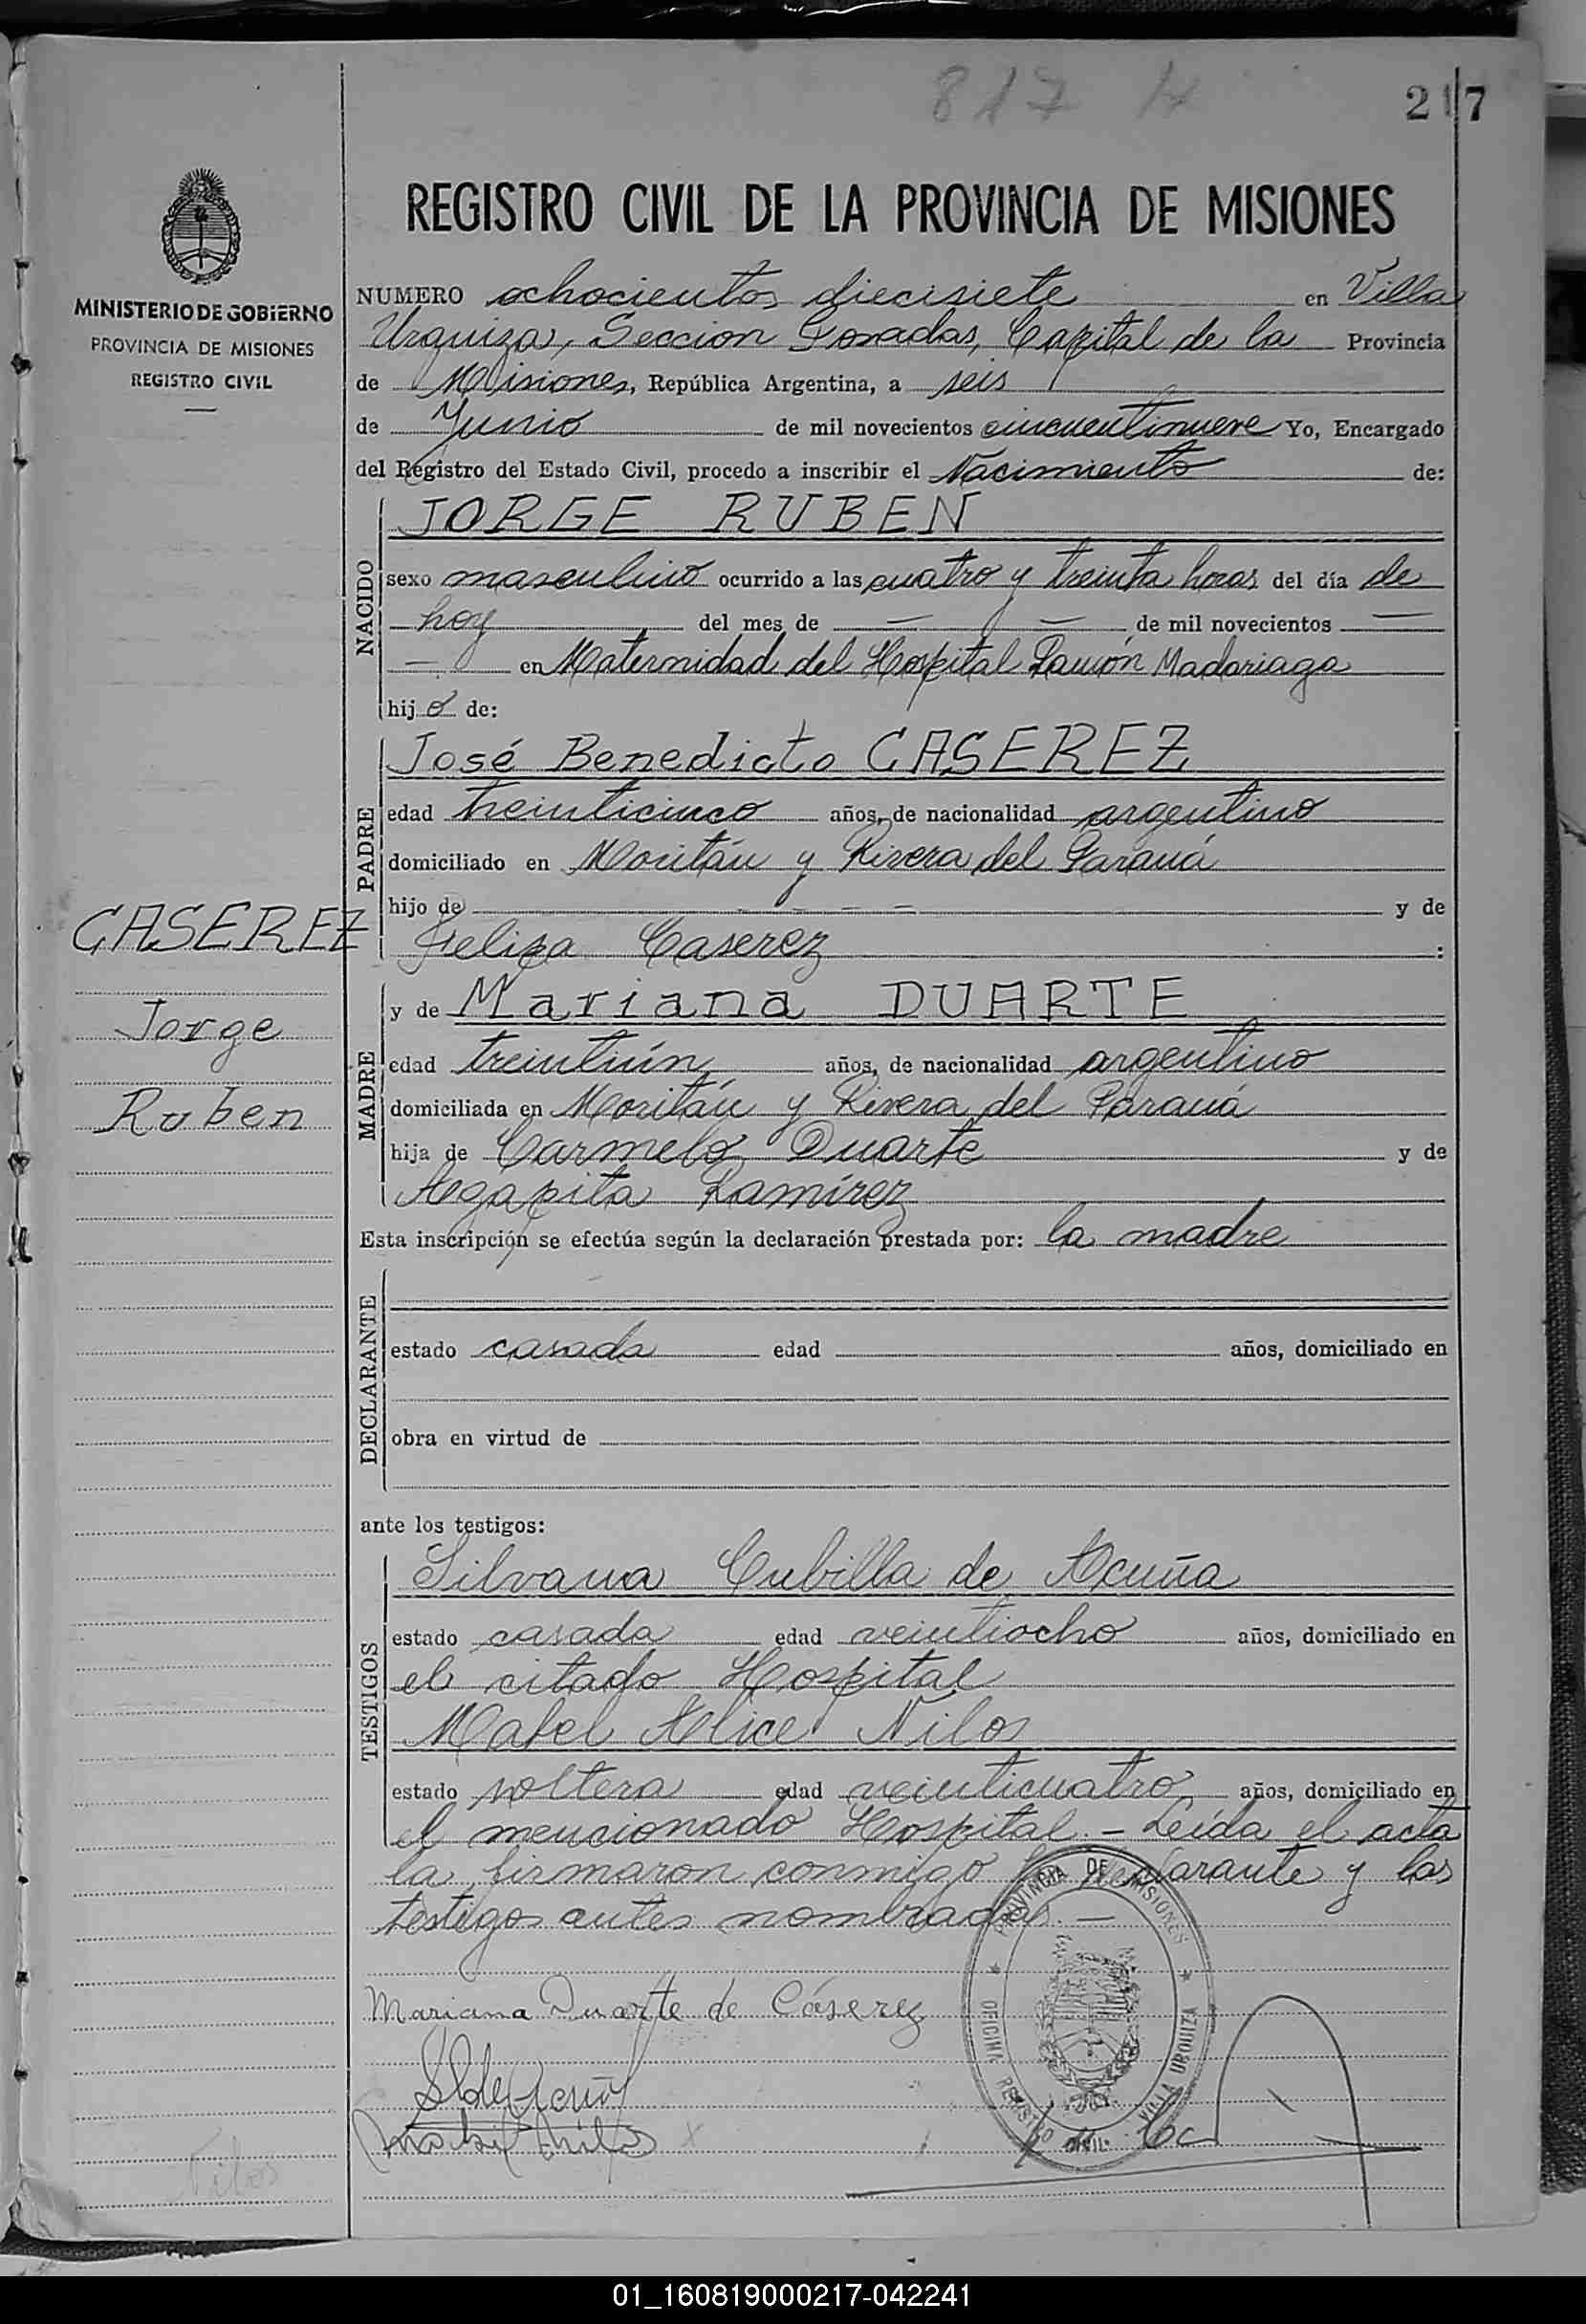 817
217
MINISTERIO DE GOBIERNO
PROVINCIA DE MISIONES
REGISTRO CIVIL
CASEREZ
Jorge
Ruben
Nilos
REGISTRO CIVIL DE LA PROVINCIA DE MISIONES
NUMERO ochocientos diecisiete en Villa
Urquiza, Seccion Posadas, Capital de la Provincia
de Misiones, República Argentina, a seis
de Junio de mil novecientos cincuentinueve Yo, Encargado
del Registro del Estado Civil, procedo a inscribir el Nacimiento de:
NACIDO
JORGE RUBEN
sexo masculino ocurrido a las cuatro y treinta horas del día de
hoy del mes de — — de mil novecientos —
— en Maternidad del Hospital Ramón Madariaga
hijo de:
PADRE
José Benedicto CASEREZ
edad treinticinco años, de nacionalidad argentino
domiciliado en Moritán y Rivera del Paraná
hijo de - - - - y de
Felipa Caserez :
MADRE
y de Mariana DUARTE
edad treintiún años, de nacionalidad argentino
domiciliada en Moritán y Rivera del Paraná
hija de Carmelo Duarte y de
Agapita Ramírez
Esta inscripción se efectúa según la declaración prestada por: la madre
DECLARANTE
estado casada edad años, domiciliado en
obra en virtud de
ante los testigos:
TESTIGOS
Silvana Cubilla de Acuña
estado casada edad veintiocho años, domiciliado en
el citado Hospital
Mabel Alice Nilos
estado soltera edad veinticuatro años, domiciliado en
el mencionado Hospital. - Leída el acta
la firmaron conmigo la declarante y los
testigos antes nombrados. —
Mariana Duarte de Cáserez
S C de Acuña
Mabel Nilos
PROVINCIA DE MISIONES
OFICINA REGISTRO CIVIL VILLA URQUIZA
01_160819000217-042241